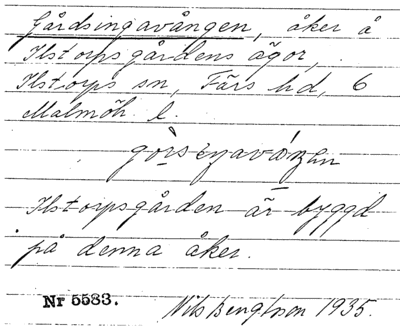 Gårdsingavången, åker å
Ilstorpsgårdens ägor,
Ilstorps sn, Färs hd, 6
Malmöh. l.
Ilstorpsgården är byggd
på denna åker.
Nr 5583.
Nils Bengtson 1935.